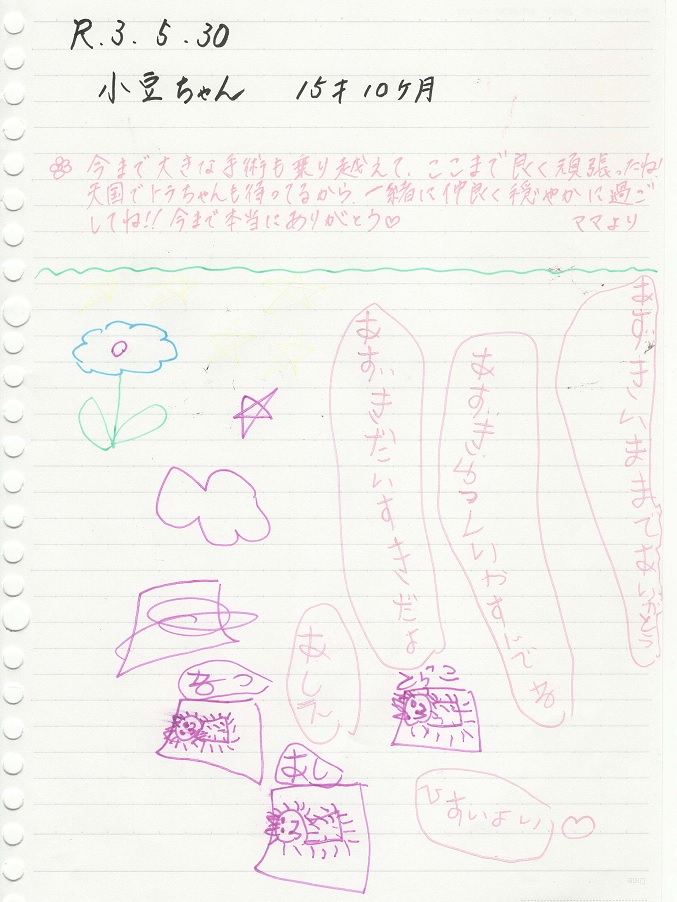 R.3.5.30
小豆ちゃん 15才10ヶ月
今まで大きな手術も乗り越えて、ここまで良く頑張ったね!
天国でトラちゃんも待ってるから、一緒に仲良く穏やかに過ご
してね!!今まで本当にありがとう♡ ママより
あずきいままでありがとう
あずきゆっくりやすんでね
あずきだいすきだよ
とらこ